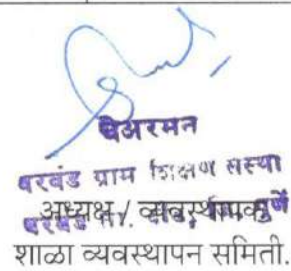 चेअरमन
वरवंड ग्राम शिक्षण संस्था
अध्यक्ष / व्यवस्थापक
वरवंड ता. दौंड, जि. पुणे
शाळा व्यवस्थापन समिती.